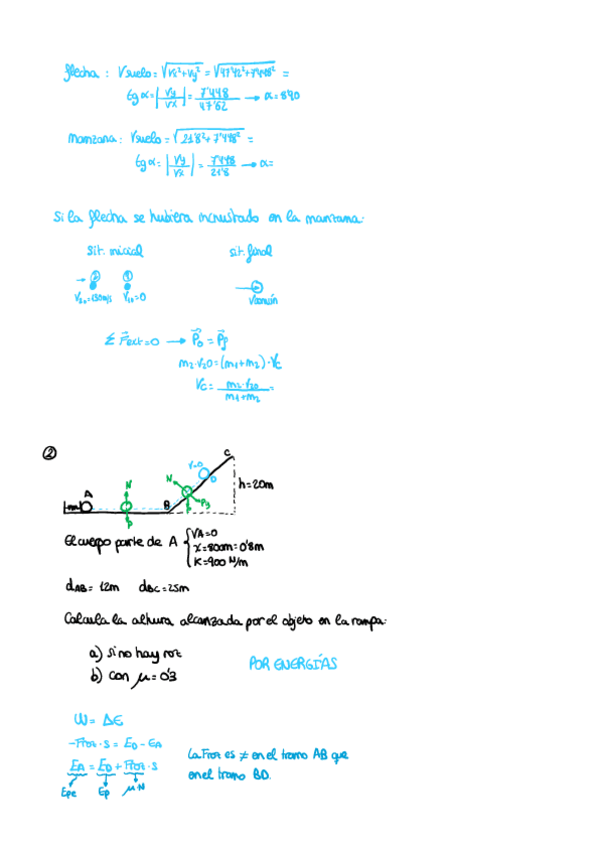 flecha: Vsuelo = √(Vx²+Vy²) = √(47'42²+7'448²) =
tg α = |Vy/Vx| = 7'448/47'62 → α = 8'40
manzana: Vsuelo = √(21'8²+7'448²) =
tg α = |Vy/Vx| = 7'448/21'8 → α =
Si la flecha se hubiera incrustado en la manzana:
sit. inicial sit. final
2 1 V20=130m/s V10=0
Vcomún
Σ Fext=0 → P0 = Pf
m2·V20=(m1+m2)·Vc
Vc = m2·V20/m1+m2 =
②
A N P B N P Py V=0 D C h=20m
El cuerpo parte de A { VA=0
x=80cm=0'8m
K=900 N/m
dAB= 12m dBC=25m
Calcula la altura alcanzada por el objeto en la rampa:
a) si no hay roz
b) con μ=0'3
POR ENERGÍAS
W= ΔE
-Froz·s = ED - EA
EA = ED + Froz·s
Epe Ep μ·N
La Froz es ≠ en el tramo AB que
en el tramo BD.